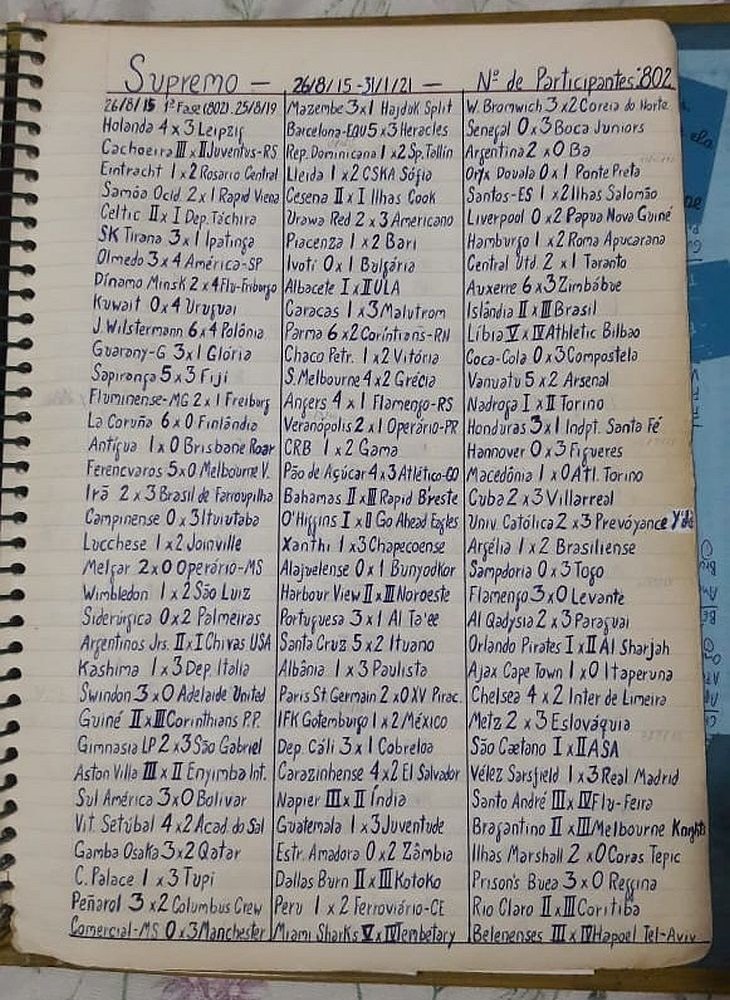 Supremo — 26/8/15 - 31/1/21 — Nº de Participantes: 802
26/8/15 1ª Fase (802). 25/8/19
Holanda 4 x 3 Leipzig
Cachoeira III x II Juventus-RS
Eintracht 1 x 2 Rosario Central
Samôa Ocid. 2 x 1 Rapid Viena
Celtic II x I Dep. Táchira
SK Tirana 3 x 1 Ipatinga
Olmedo 3 x 4 América-SP
Dínamo Minsk 2 x 4 Flu-Friburgo
Kuwait 0 x 4 Uruguai
J. Wilstermann 6 x 4 Polônia
Guarany-G 3 x 1 Glória
Sapiranga 5 x 3 Fiji
Fluminense-MG 2 x 1 Freiburg
La Coruña 6 x 0 Finlândia
Antígua 1 x 0 Brisbane Roar
Ferencvaros 5 x 0 Melbourne V.
Irã 2 x 3 Brasil de Farroupilha
Campinense 0 x 3 Ituiutaba
Lucchese 1 x 2 Joinville
Melgar 2 x 0 Operário-MS
Wimbledon 1 x 2 São Luiz
Siderúrgica 0 x 2 Palmeiras
Argentinos Jrs. II x I Chivas USA
Kashima 1 x 3 Dep. Italia
Swindon 3 x 0 Adelaide United
Guiné II x III Corinthians P.P.
Gimnasia LP 2 x 3 São Gabriel
Aston Villa III x II Enyimba Int.
Sul América 3 x 0 Bolivar
Vit. Setúbal 4 x 2 Acad. do Sal
Gamba Osaka 3 x 2 Qatar
C. Palace 1 x 3 Tupi
Peñarol 3 x 2 Columbus Crew
Comercial-MS 0 x 3 Manchester
Mazembe 3 x 1 Hajduk Split
Barcelona-EQU 5 x 3 Heracles
Rep. Dominicana 1 x 2 Sp. Tallin
Lleida 1 x 2 CSKA Sófia
Cesena II x I Ilhas Cook
Urawa Red 2 x 3 Americano
Piacenza 1 x 2 Bari
Ivoti 0 x 1 Bulgária
Albacete I x II ULA
Caracas 1 x 3 Malutrom
Parma 6 x 2 Coríntians-RN
Chaco Petr. 1 x 2 Vitória
S. Melbourne 4 x 2 Grécia
Angers 4 x 1 Flamengo-RS
Veranópolis 2 x 1 Operário-PR
CRB 1 x 2 Gama
Pão de Açúcar 4 x 3 Atlético-GO
Bahamas II x III Rapid B'reste
O'Higgins I x II Go Ahead Eagles
Xanthi 1 x 3 Chapecoense
Alajuelense 0 x 1 Bunyodkor
Harbour View II x III Noroeste
Portuguesa 3 x 1 Al Ta'ee
Santa Cruz 5 x 2 Ituano
Albânia 1 x 3 Paulista
Paris St. Germain 2 x 0 XV Pirac.
IFK Gotemburgo 1 x 2 México
Dep. Cáli 3 x 1 Cobreloa
Carazinhense 4 x 2 El Salvador
Napier III x II Índia
Guatemala 1 x 3 Juventude
Estr. Amadora 0 x 2 Zâmbia
Dallas Burn II x III Kotoko
Peru 1 x 2 Ferroviário-CE
Miami Sharks V x IV Tembetary
W. Bromwich 3 x 2 Coreia do Norte
Senegal 0 x 3 Boca Juniors
Argentina 2 x 0 Ba
Oryx Douala 0 x 1 Ponte Preta
Santos-ES 1 x 2 Ilhas Salomão
Liverpool 0 x 2 Papua Nova Guiné
Hamburgo 1 x 2 Roma Apucarana
Central Utd. 2 x 1 Taranto
Auxerre 6 x 3 Zimbábue
Islândia II x III Brasil
Líbia V x IV Athletic Bilbao
Coca-Cola 0 x 3 Compostela
Vanuatu 5 x 2 Arsenal
Nadroga I x II Torino
Honduras 3 x 1 Indpt. Santa Fé
Hannover 0 x 3 Figueres
Macedônia 1 x 0 Atl. Torino
Cuba 2 x 3 Villarreal
Univ. Católica 2 x 3 Prevóyance Y'dé
Argélia 1 x 2 Brasiliense
Sampdoria 0 x 3 Togo
Flamengo 3 x 0 Levante
Al Qadysia 2 x 3 Paraguai
Orlando Pirates I x II Al Sharjah
Ajax Cape Town 1 x 0 Itaperuna
Chelsea 4 x 2 Inter de Limeira
Metz 2 x 3 Eslováquia
São Caetano I x II ASA
Vélez Sarsfield 1 x 3 Real Madrid
Santo André III x IV Flu-Feira
Bragantino II x III Melbourne Knights
Ilhas Marshall 2 x 0 Coras Tepic
Prison's Buea 3 x 0 Reggina
Rio Claro II x III Coritiba
Belenenses III x IV Hapoel Tel-Aviv